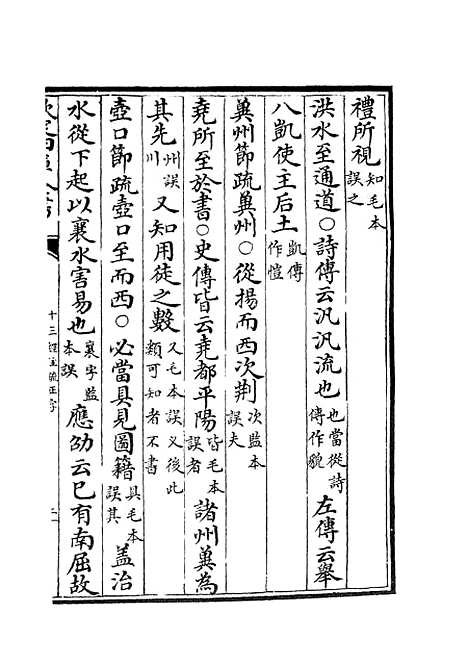 禮所視知毛本誤之
洪水至通道○詩傳云汎汎流也也當從詩傳作貌左傳云舉
八凱使主后土凱傳作愷
冀州節疏冀州○從揚而西次荆次監本誤夫
堯所至於書○史傳皆云堯都平陽皆毛本誤者諸州冀為
其先州誤川又知用徒之數又毛本誤义後此類可知者不書
壺口節疏壺口至而西○必當具見圖籍具毛本誤其蓋治
水從下起以襄水害易也襄字監本誤應劭云已有南屈故
十三經注疏正字